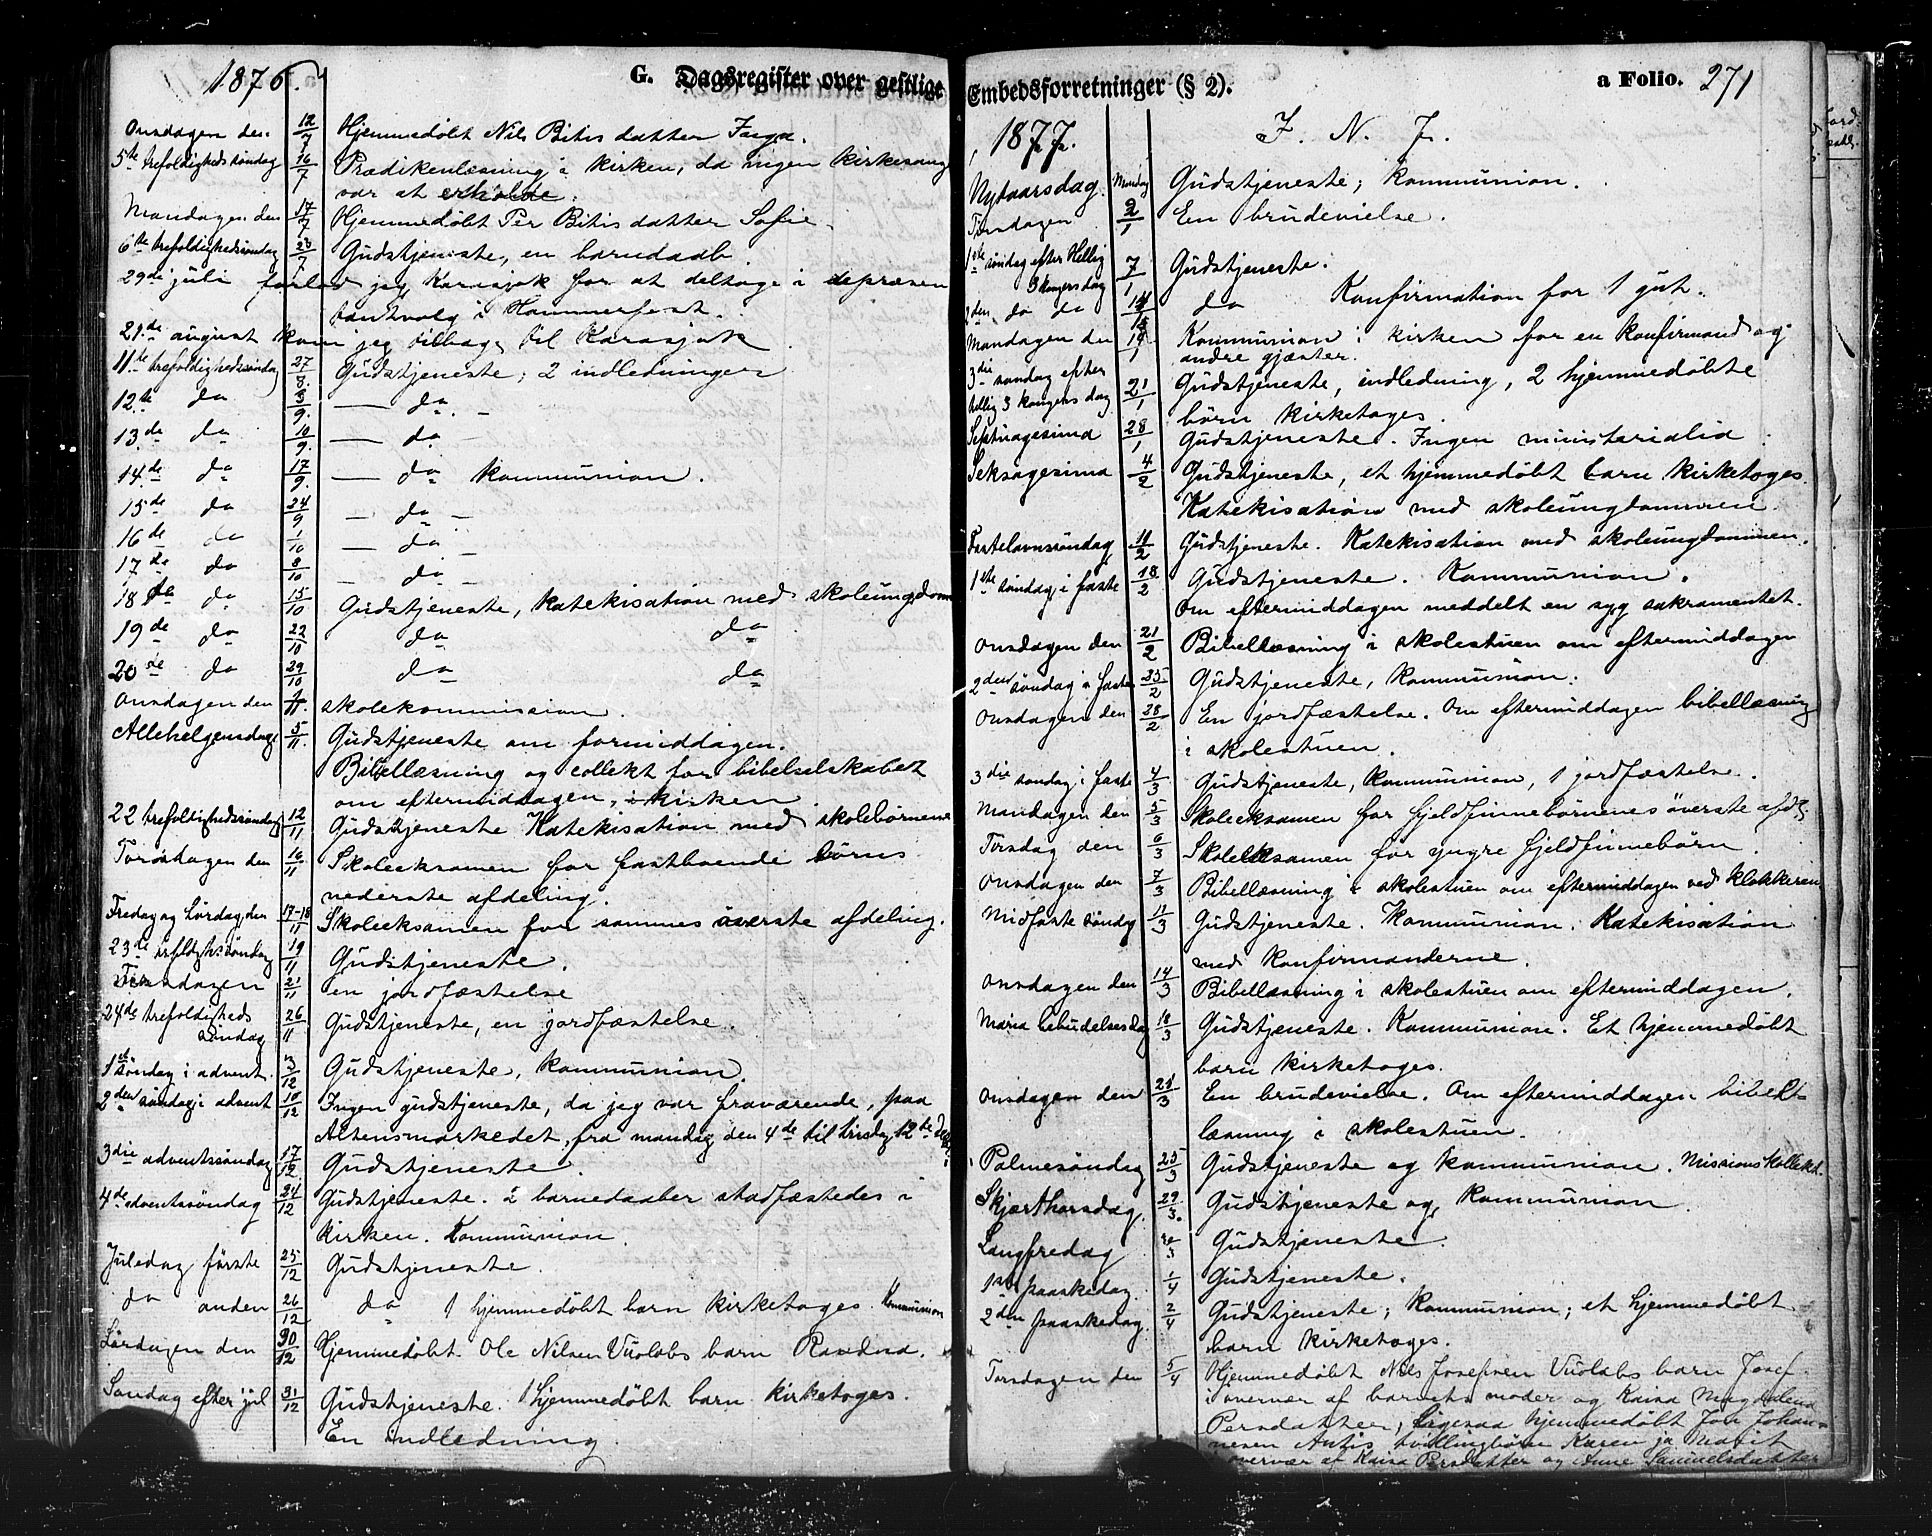 G. Dagsregister over gestlige
1876.
Onsdagen den 12/7 Hjemmedøbt Nils Bitis datter Inga.
5te trefoldigheds søndag 16/7 Prædikenlæsning i kirken, da ingen kirkesang
var at erholde.
Mandagen den 17/7 Hjemmedøbt Per Bitis datter Sofie.
6te trefoldighedssøndag 23/7 Gudstjeneste, en barnedaab.
29de juli forlod jeg Karasjok for at deltage i depræsen
tantvalg i Hammerfest.
21de august kom jeg tilbage til Karasjok
11te trefoldighedssøndag 27/8. Gudstjeneste; 2 indledninger
12te do 3/9. — do. –
13de do 10/9. — do –
14de do 17/9. — do kommunion.
15de do 24/9 — do –
16de do 1/10 — do –
17de do 8/10 — do –
18de do 15/10 Gudstjeneste, katekisation med skoleungdom
19de do 22/10 do do
20de do 29/10 do do
Onsdagen den 1/11. skolekommission.
Allehelgensdag 5/11. Gudstjeneste om formiddagen.
Bibellæsning og collekt for bibelselskabet
om eftermiddagen, i kirken.
22 trefoldighedssøndag 12/11 Gudstjeneste Katekisation med skolebørnene
Torsdagen den 16/11 Skoleeksamen for fastboende börns
nederste afdeling.
Fredag og Lørdag den 17-18/11 Skoleeksamen for sammes øverste afdeling.
23de trefoldighs. søndag 19/11 Gudstjeneste.
Tirsdagen 21/11 en jordfæstelse
24de trefoldigheds
søndag 26/11 Gudstjeneste, en jordfæstelse.
1ste søndag i advent. 3/12 Gudstjeneste, kommunion.
2den søndag i advent 10/12 Ingen gudstjeneste, da jeg var fraværende, paa
Altensmarkedet, fra mandag den 4de til tirsdag 12te
3die adventssøndag 17/12 Gudstjeneste.
4de adventssøndag 24/12 Gudstjeneste. 2 barnedaaber stadfæstedes i
kirken. Kommunion.
Juledag første 25/12 Gudstjeneste.
do anden 26/12 do 1 hjemmedøbt barn kirketoges. Kommunion
Lørdagen den 30/12 Hjemmedøbt Ole Nilsen Vuolabs barn Ravdna.
Søndag efter jul 31/12 Gudstjeneste. 1 hjemmedøbt barn kirketoges.
En indledning.
Embedsforretninger (§ 2). a Folio. 271
1877. I. N. J.
Nytaarsdag Mandag 1 Gudstjeneste; kommunion.
Tirsdagen 2/1 En brudevielse.
1ste søndag efter Hellig
3 kongers dag 7/1 Gudstjeneste.
2den do do 14/1 do Konfirmation for 1 gut.
Mandagen den 15/1 Kommunion i kirken for en konfirmand og
andre gjæster.
3die søndag efter
hellig 3 kongers dag 21/1 Gudstjeneste, indledning, 2 hjemmedøbte
börn kirketoges.
Septuagesima 28/1 Gudstjeneste. Ingen ministerialia.
Seksagesima 4/2 Gudstjeneste, et hjemmedøbt barn kirketoges.
Katekisation med skoleungdommen.
Fastelavnssøndag 11/2 Gudstjeneste. Katekisation med skoleungdommen.
1ste søndag i faste 18/2 Gudstjeneste. Kommunion.
Om eftermiddagen meddelt en syg sakramentet.
Onsdagen den 21/2 Bibellæsning i skolestuen om eftermiddagen
2den søndag i faste 25/2 Gudstjeneste, kommunion.
Onsdagen den 28/2 En jordfæstelse. Om eftermiddagen bibellæsning
i skolestuen.
3die søndag i faste 4/3 Gudstjeneste, kommunion, 1 jordfæstelse.
Mandagen den 5/3 Skoleeksamen for fjeldfinnebørnenes överste afdg
Tirsdag den 6/3 Skoleeksamen for yngre fjeldfinnebørn.
Onsdagen den 7/3 Bibellæsning i skolestuen om eftermiddagen ved klokkeren
Midfaste søndag 11/3 Gudstjeneste. Kommunion. Katekisation
med konfirmanderne.
Onsdagen den 14/3 Bibellæsning i skolestuen om eftermiddagen.
Maria bebudelsesdag 18/3 Gudstjeneste. Kommunion. Et hjemmedøbt
barn kirketoges.
Onsdagen den 21/3 En brudevielse. Om eftermiddagen bibel-
læsning i skolestuen.
Palmesøndag 25/3 Gudstjeneste og kommunion. Missionskollekt.
Skjærthorsdag 29/3. Gudstjeneste og kommunion.
Langfredag 30/3 Gudstjeneste
1ste paaskedag 1/4 Gudstjeneste.
2den paaskedag 2/4 Gudstjeneste; kommunion; et hjemmedøbt
barn kirketoges.
Torsdagen den 5/4 Hjemmedøbt Nils Josefsen Vuolabs barn Josef
i overvær af barnets moder og Kaisa Magdalena
Persdatter; ligesaa hjemmedøbt Jon Johan-
nesen Antis tvillingbørn Karen ja Marit
overvær af Kaisa Persdatter og Anne Samuelsdatter